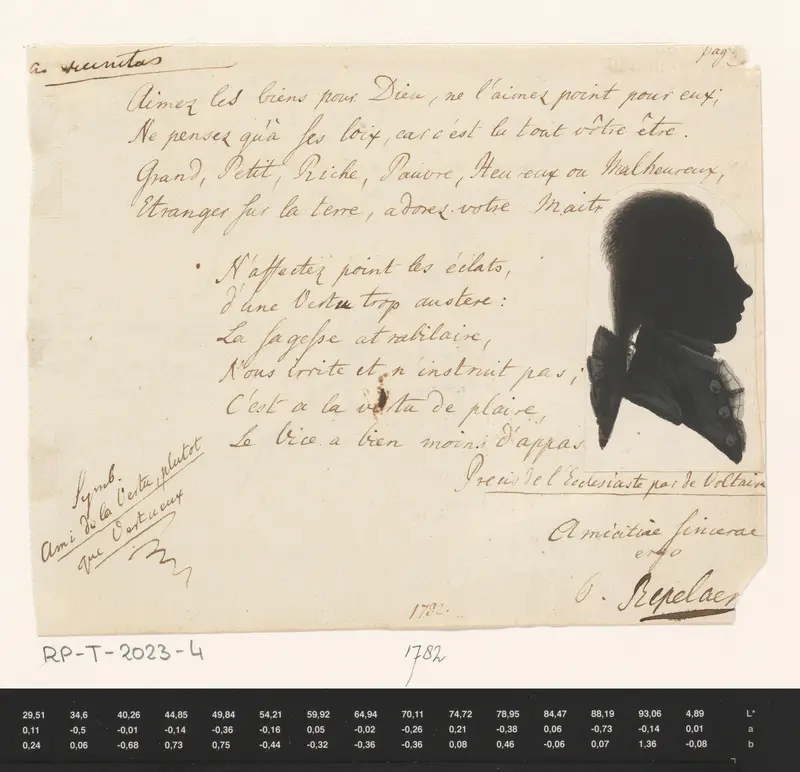 pag
Aimez les biens pour Dieu, ne l'aimez point pour eux;
Ne pensez qu'à ses loix, car c'est la tout vôtre être.
Grand, Petit, Riche, Pauvre, Heureux ou Malheureux,
Etranger sur la terre, adorez votre Maitr
N'affectez point les éclats,
d'une Vertu trop austere:
La sagesse atrabilaire,
Nous irrite et n'instruit pas;
C'est a la vertu de plaire,
Le Vice a bien moins d'appas
Precis de l'Ecclesiaste par de Voltaire
Symb.
Ami de la Vertu, plutot
que Vertueux
Amicitiae sincerae
ergo
Repelaer
1782.
RP-T-2023-4
1782
29,51 34,6 40,26 44,85 49,84 54,21 59,92 64,94 70,11 74,72 78,95 84,47 88,19 93,06 4,89 L*
0,11 -0,5 -0,01 -0,14 -0,36 -0,16 0,05 -0,02 -0,26 0,21 -0,38 0,06 -0,73 -0,14 0,01 a
0,24 0,06 -0,68 0,73 0,75 -0,44 -0,32 -0,36 -0,36 0,08 0,46 -0,06 0,07 1,36 -0,08 b